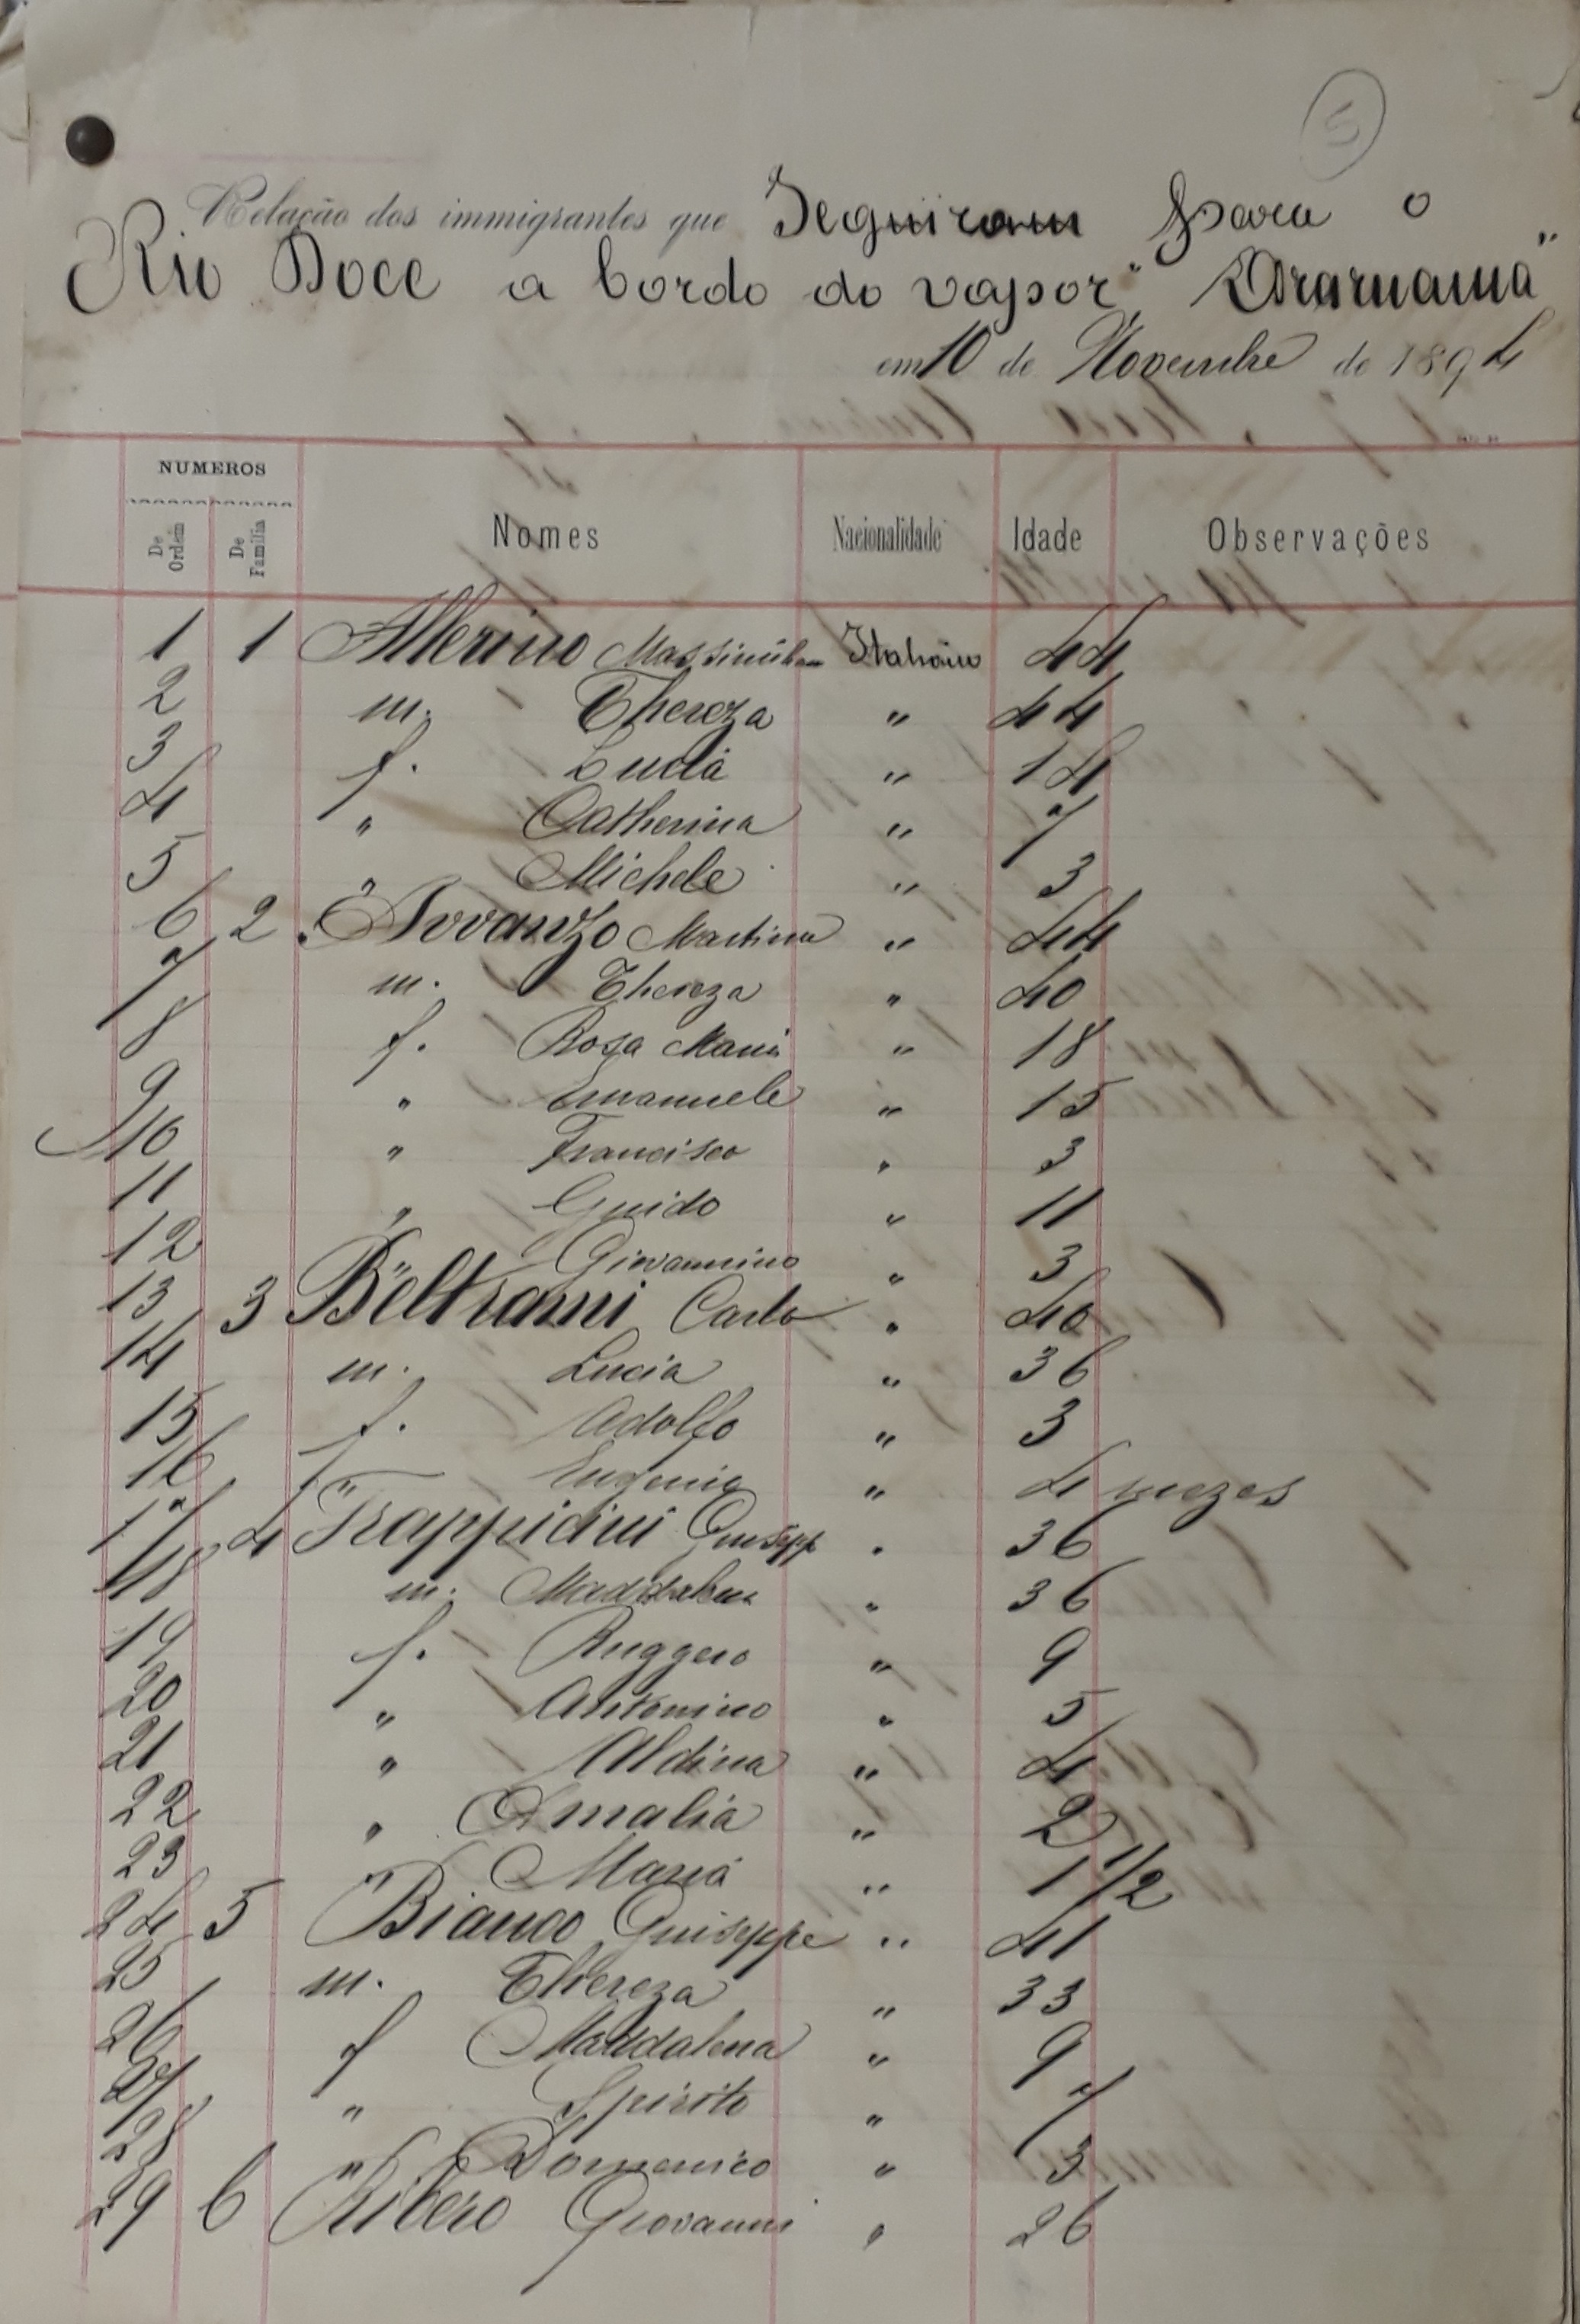 5
Relação dos immigrantes que Seguiram para o
Rio Doce a bordo do vapor "Araruama"
em 10 de Novembro de 1894
NUMEROS
De Ordem De Familia Nomes Nacionalidade Idade Observações
1 1 Allerino Massimilian Italiano 44
2 m. Thereza " 44
3 f. Lucia " 14
4 " Catherina " 7
5 " Michele " 3
6 2 Avvanzo Martino " 44
7 m. Thereza " 40
8 f. Rosa Maria " 18
9 " Emanuele " 15
10 " Francisco " 3
11 " Guido " 11
12 " Giovannino " 3
13 3 Beltrami Carlo " 40
14 m. Lucia " 36
15 f. Adolfo " 3
16 " Eugenio " 4 mezes
17 4 Trappidini Giusepp " 36
18 m. Maddalena " 36
19 f. Ruggero " 9
20 " Antonino " 5
21 " Aldina " 4
22 " Amalia " 2
23 " Maria " 1 1/2
24 5 Bianco Guiseppe " 41
25 m. Thereza " 33
26 f Maddalena " 9
27 " Spirito " 7
28 " Domenico " 3
29 6 Ribero Giovanni " 26